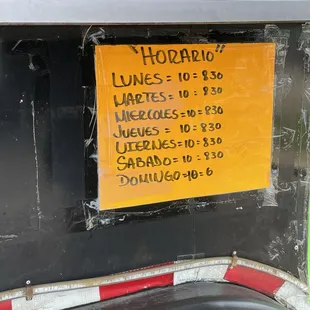 "HORARIO"
LUNES = 10 = 830
MARTES = 10 = 830
MIERCOLES = 10 = 830
JUEVES = 10 = 830
VIERNES = 10 = 830
SABADO = 10 = 830
DOMINGO = 10 = 6